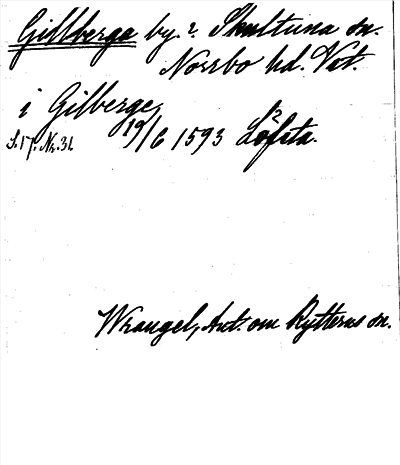 Gillberga by. i Skultuna sn.
Norrbo hd. Vst.
i Gilberge
S. 17. Nr. 31 19/6 1593 Löfsta.
Wrangel, Ant. om Rytterns sn.